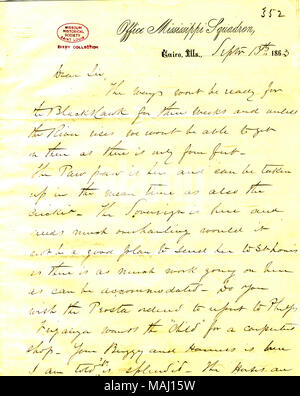 352
MISSOURI
HISTORICAL
SOCIETY
SAINT LOUIS
BIXBY COLLECTION
Office Mississippi Squadron,
Cairo, Ills., Septr 13th, 1863
Dear Sir,
The ways wont be ready for
the Black Hawk for three weeks and unless
the River rises we wont be able to get
on them as there is only four feet.
The Paw paw is here and can be taken
up in the mean time as also the
Cricket. The Sovereign is here and
needs much overhauling would it
not be a good plan to send her to St Louis
as there is as much work going on here
as can be accommodated - Do you
wish the Prosta ordered to report to Phelps
wants the "Child" for a carpenter
shop - Your Buggy and Harness is here
I am told is splendid - The Horses are
alamy
Image ID: MAJ15W
www.alamy.com